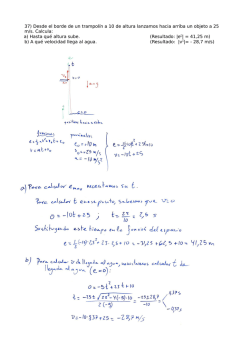 37) Desde el borde de un trampolín a 10 de altura lanzamos hacia arriba un objeto a 25
m/s. Calcula:
a) Hasta qué altura sube. (Resultado: |e⃗| = 41,25 m)
b) A qué velocidad llega al agua. (Resultado: |v⃗|= - 28,7 m/s)
t
v=0
a=-g
e=0
fórmulas
parámetros
e₀=+10m
v₀=+25 m/s
a=-10 m/s²
v=-10t+25
a) Para calcular eₘₐₓ necesitamos su t.
Para calcular t en ese punto, sabemos que v=0
0=-10t+25 ; t= 25/10 = 2,5 s
Sustituyendo este tiempo en la fórmula del espacio
e=½(-10)·2,5²+25·2,5+10=-31,25+62,5+10=41,25m
b) Para calcular v de llegada al agua, necesitamos calcular t de
llegada al agua (e=0):
0=-5t²+25t+10
v=-10·5,37+25=-28,7m/s